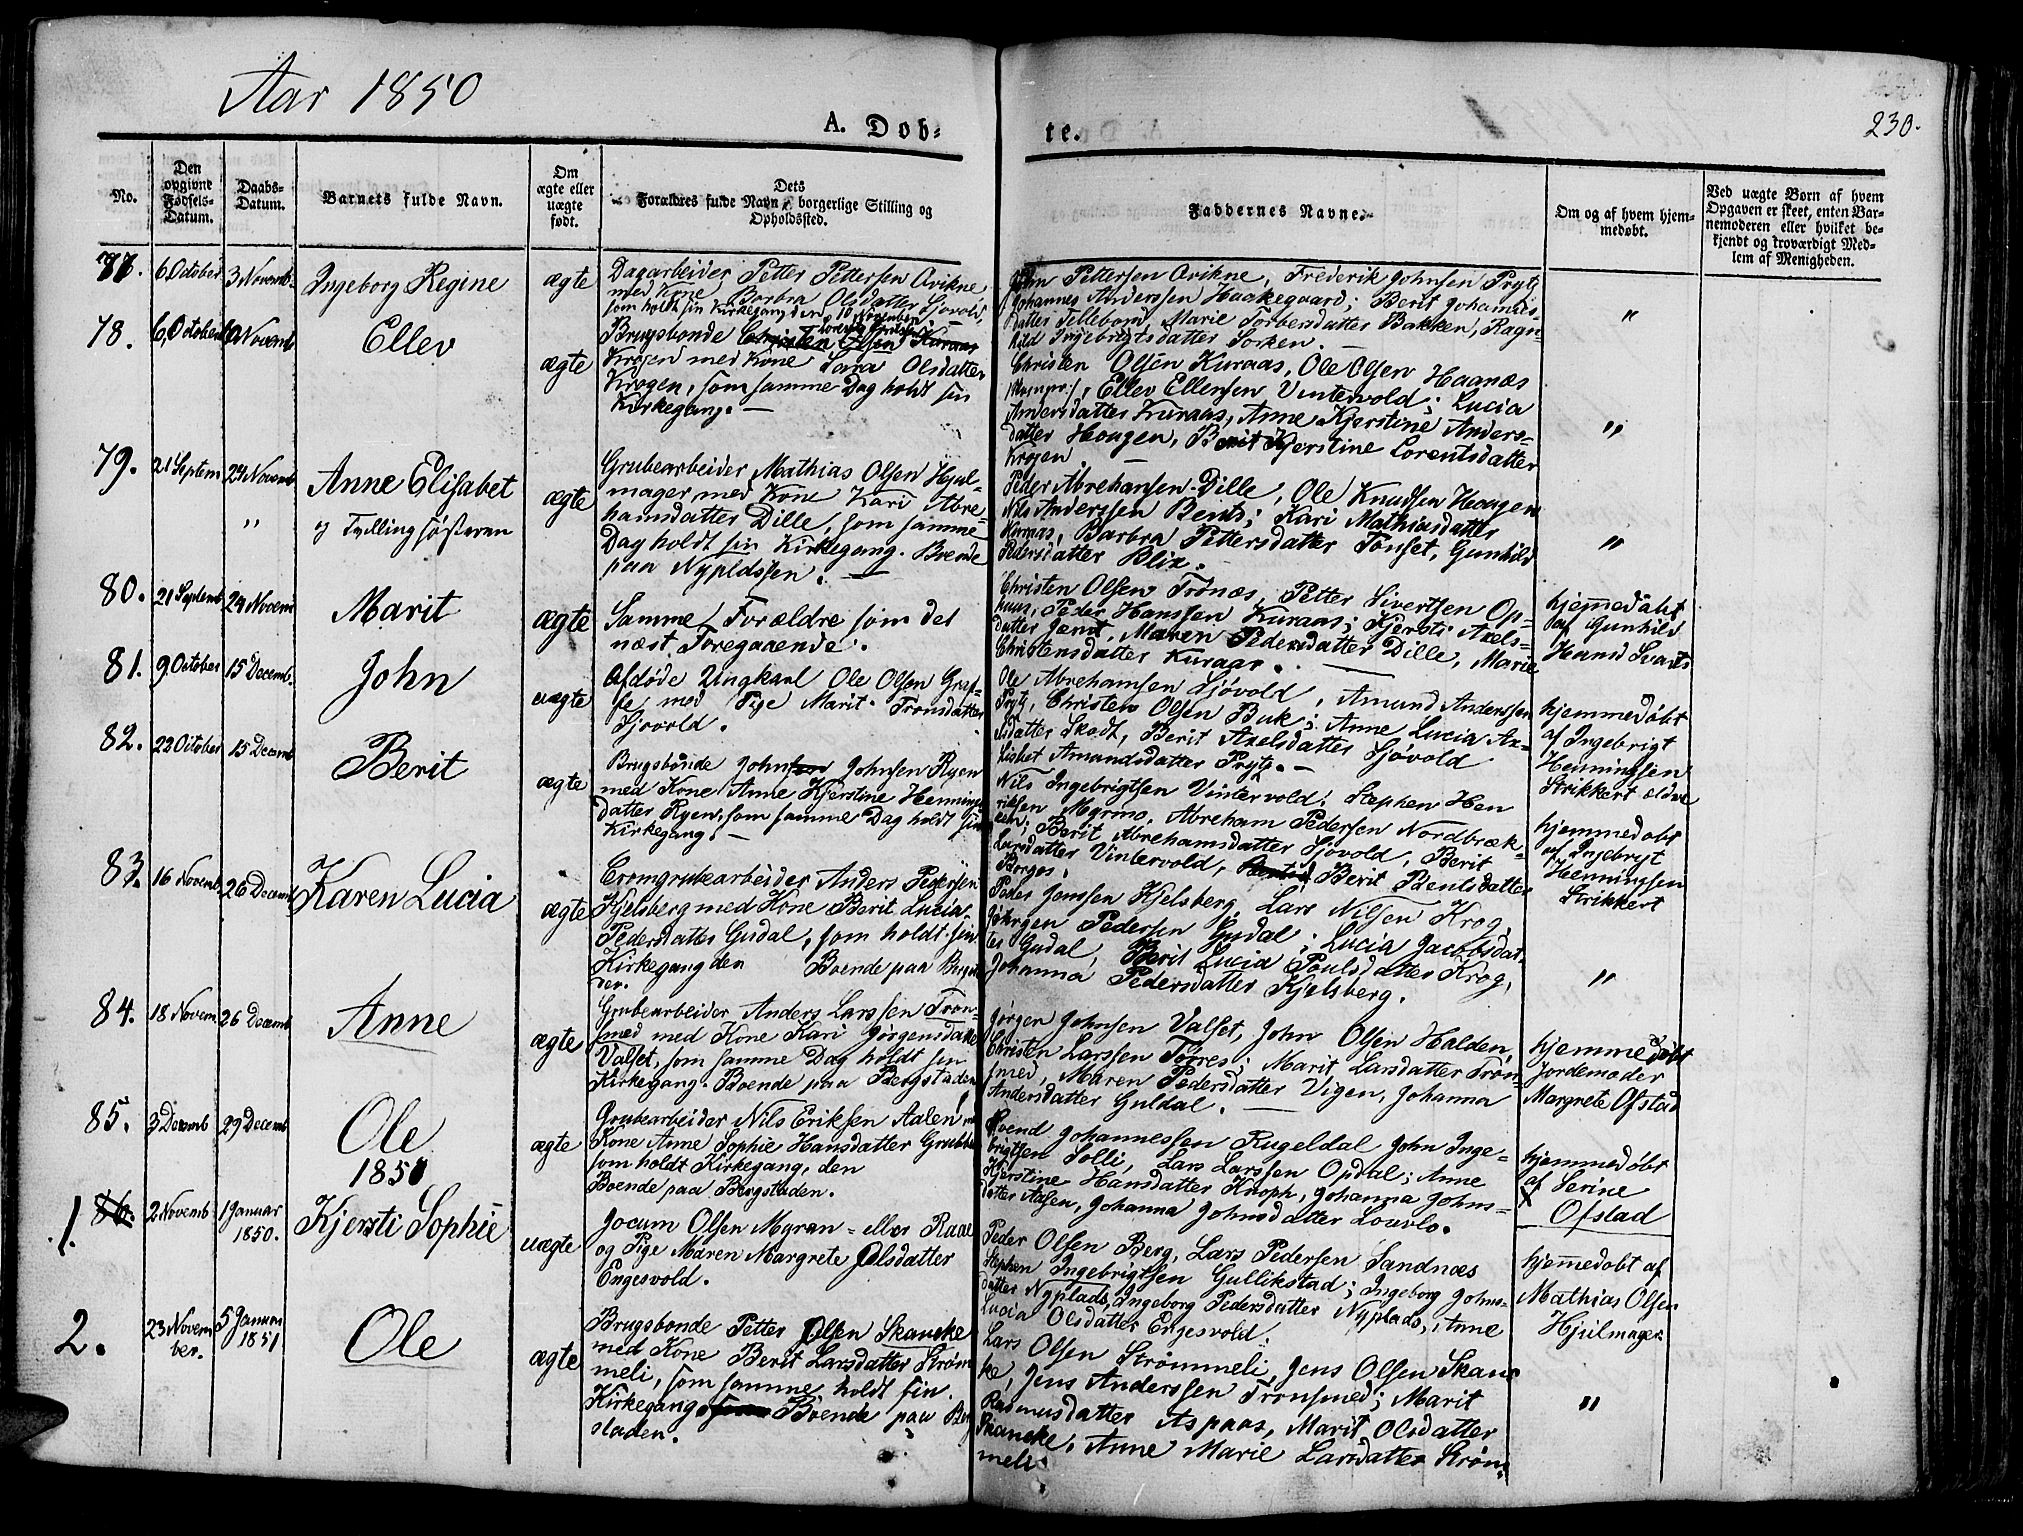 Aar 1850
A. Döb-
te.
230.
No.
Den opgivne Fødsels-Datum.
Daabs-Datum.
Barnets fulde Navn.
Om ægte eller uægte født.
Dets Forældres fulde Navn, borgerlige Stilling og Opholdssted.
Faddernes Navne.
Om og af hvem hjem-medøbt.
Ved uægte Børn af hvem Opgaven er skeet, enten Bar-nemoderen eller hvilket be-kjendt og troværdigt Med-lem af Menigheden.
77.
6 October
3 Novemb.
Ingeborg Regine
ægte
Dagarbeider Petter Pettersen Avikne
med Kone Borbra Olsdatter Sjøvold,
som holdt sin Kirkegang den 10 November
John Pettersen Avikne, Frederik Johnsen Prytz
Johannes Anderssen Haakegaard; Berit Johannes-
datter Tellebond, Marie Torbersdatter Bakken, Ragn-
hild Ingebrigtsdatter Sorken.
"
78.
6, October
Novemb
Ellev
ægte
Brugsbonde Christen Olsen Kuraas
Krogen med Kone Sara Olsdatter
Krogen, som samme Dag holdt sin
Kirkegang.
Christen Olsen Kuraas, Ole Olsen Haanæs
Ellev Ellensen Vintervold; Lucia
Andersdatter Kuraas, Anne Kjerstine Anders-
datter Hougen, Berit Kjerstine Lorentsdatter
Krogen
"
79.
21 Septem
24 Novemb
Anne Elisabet
"
og Tvillingsøsteren
ægte
Grubearbeider Mathias Olsen Hjul-
mager med Kone Kari Abre-
hamsdatter Dille, som samme
Dag holdt sin Kirkegang. Boende
paa Nypldssen.
Peder Abrehamsen Dille, Ole Knudsen Hougen
Nils Anderssen Bents; Kari Mathiasdatter
Kuraas, Barbra Pettersdatter Tonset, Gunhild
Pedersdatter Blix.
"
80.
21 Septemb
24 Novem
Marit
ægte
Samme Forældre som det
næst Foregaaende.
Christen Olsen Trønæs, Petter Sivertsen Op-
haus, Peder Hanssen Kuraas; Kjersti Axels-
datter Jæmt, Maren Pedersdatter Dille, Marie
Christensdatter Kuraas.
hjemmedøbt
af Gunhild
Hans Svarts
81.
9 October
15 Decemb.
John
uægte
Afdøde Ungkarl Ole Olsen Graf-
se med Pige Marit Tronsdatter
Sjovold.
Ole Abrehamsen Sjövold, Amund Anderssen
Prytz, Christen Olsen Buk; Anne Lucia Ax-
elsdatter Skott, Berit Axelsdatter Sjövold
Lisbet Amundsdatter Prytz.
hjemmedøbt
af Ingebrigt
Henningsen
Strikkert ældre
82.
22 October
15 Decemb
Berit
ægte
Brugsbonde John Johnsen Ryen
med Kone Anne Kjerstine Hennings
datter Ryen, som samme Dag holdt sin
Kirkegang.
Nils Ingebrigtsen Vintervold, Stephen Hen
riksen Myrmo, Abreham Pedersen Nordbræk-
ken; Berit Abrehamsdatter Sjøvold, Berit
Larsdatter Vintervold, Berit Bentsdatter
Borgos.
hjemmedøbt
af Ingebrigt
Henningsen
Strikkert
83.
16 Novemb
26 Decemb
Karen Lucia
ægte
Cromgrubearbeider Anders Pedersen
Kjelsberg med Kone Berit Lucia
Pedersdatter Gudal, som holdt sin
Kirkegang den Boende paa Bergsta
den.
Peder Jonssen Kjelsberg, Lars Nilsen Krog,
Jörgen Pedersen Gudal; Lucia Jacobsdat-
ter Gudal, Berit Lucia Poulsdatter Krog,
Johanna Pedersdatter Kjelsberg.
"
84.
18 Novem
26 Decemb
Anne
ægte
Grubearbeider Anders Larssen Tron-
smed med Kone Kari Jørgensdatter
Valset, som samme Dag holdt sin
Kirkegang. Boende paa Bergstaden
Jørgen Johnsen Valset, John Olsen Halden,
Christen Larssen Torres; Marit Larsdatter Tron-
smed, Maren Pedersdatter Vigen, Johanna
Andersdatter Guldal.
hjemmedøbt
Jordemoder
Margrete Ofstad
85.
3 Decemb
29 Decemb
Ole
ægte
Grubearbeider Nils Eriksen Aalen m
Kone Anne Sophie Hansdatter Grubbe
som holdt Kirkegang, den
Boende paa Bergstaden.
Svend Johannessen Rugeldal, John Inge-
brigtsen Solli, Lars Larssen Opdal; Anne
Kjerstine Hansdatter Knoph, Johanna Johns-
datter Aasen, Johanna Johnsdatter Louvlo.
hjemmedøbt
af Serine
Ofstad
1851
1. 86.
2 Novemb
1 Januar
1850.
Kjersti Sophie
uægte
Jocum Olsen Myran - eller Raae
og Pige Maren Margrete Olsdatter
Engesvold.
Peder Olsen Berg, Lars Pedersen Sandnæs
Stephen Ingebrigtsen Gullikstad; Ingeborg Johns-
datter Nyplads, Ingeborg Pedersdatter Nyplads, Anne
Lucia Olsdatter Engesvold.
hjemmedøbt af
Mathias Olsen
Hjulmager
2.
23 Novem
ber.
5 Januar
1851
Ole
ægte
Brugsbonde Petter Olsen Skancke
med Kone Berit Larsdatter Strøm
meli, som samme holdt sin
Kirkegang Boende paa Berg
staden.
Lars Olsen Strømmeli, Jens Olsen Skanc
ke, Jens Anderssen Tronsmed; Marit
Rasmusdatter Aspaas, Marit Olsdatter
Skancke, Anne Marie Larsdatter Strøm
meli.
"